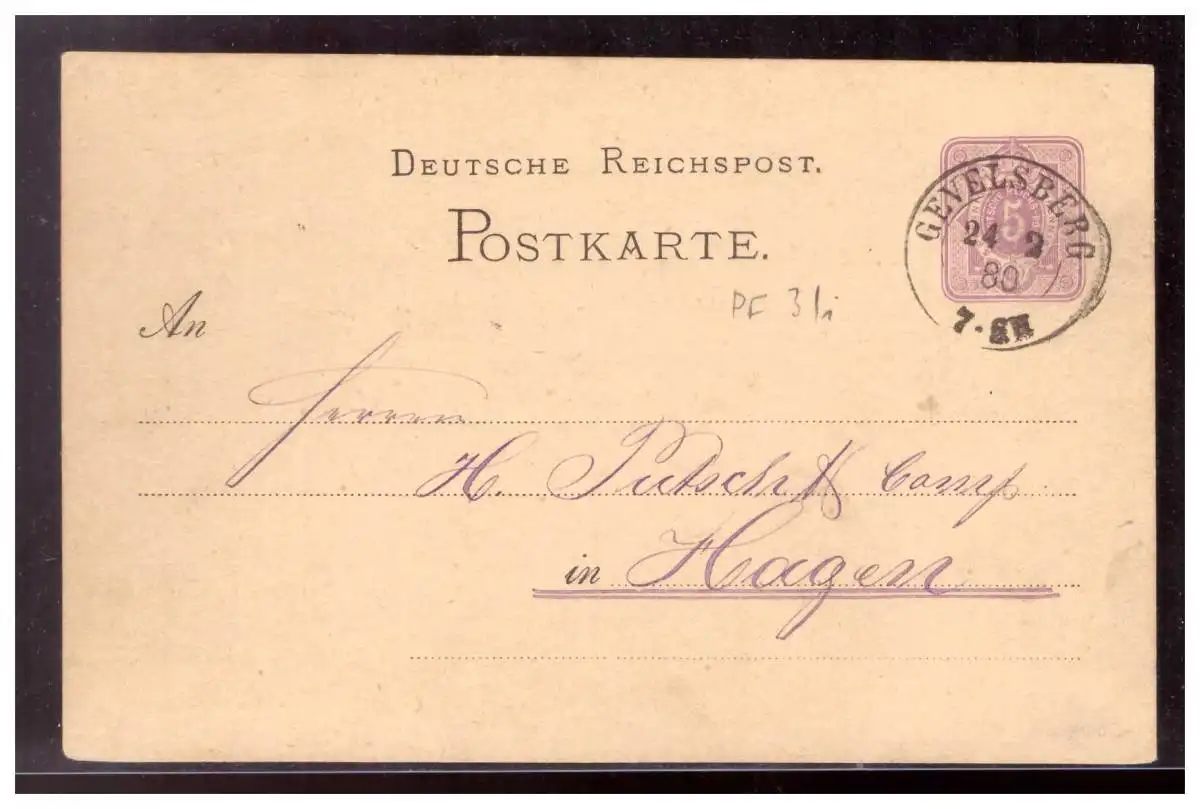 DEUTSCHE REICHSPOST.
POSTKARTE.
5
GEVELSBERG
24 2
80
7-8N
PF 3/i
An
Herren
H. Putsch & Comp
in Hagen